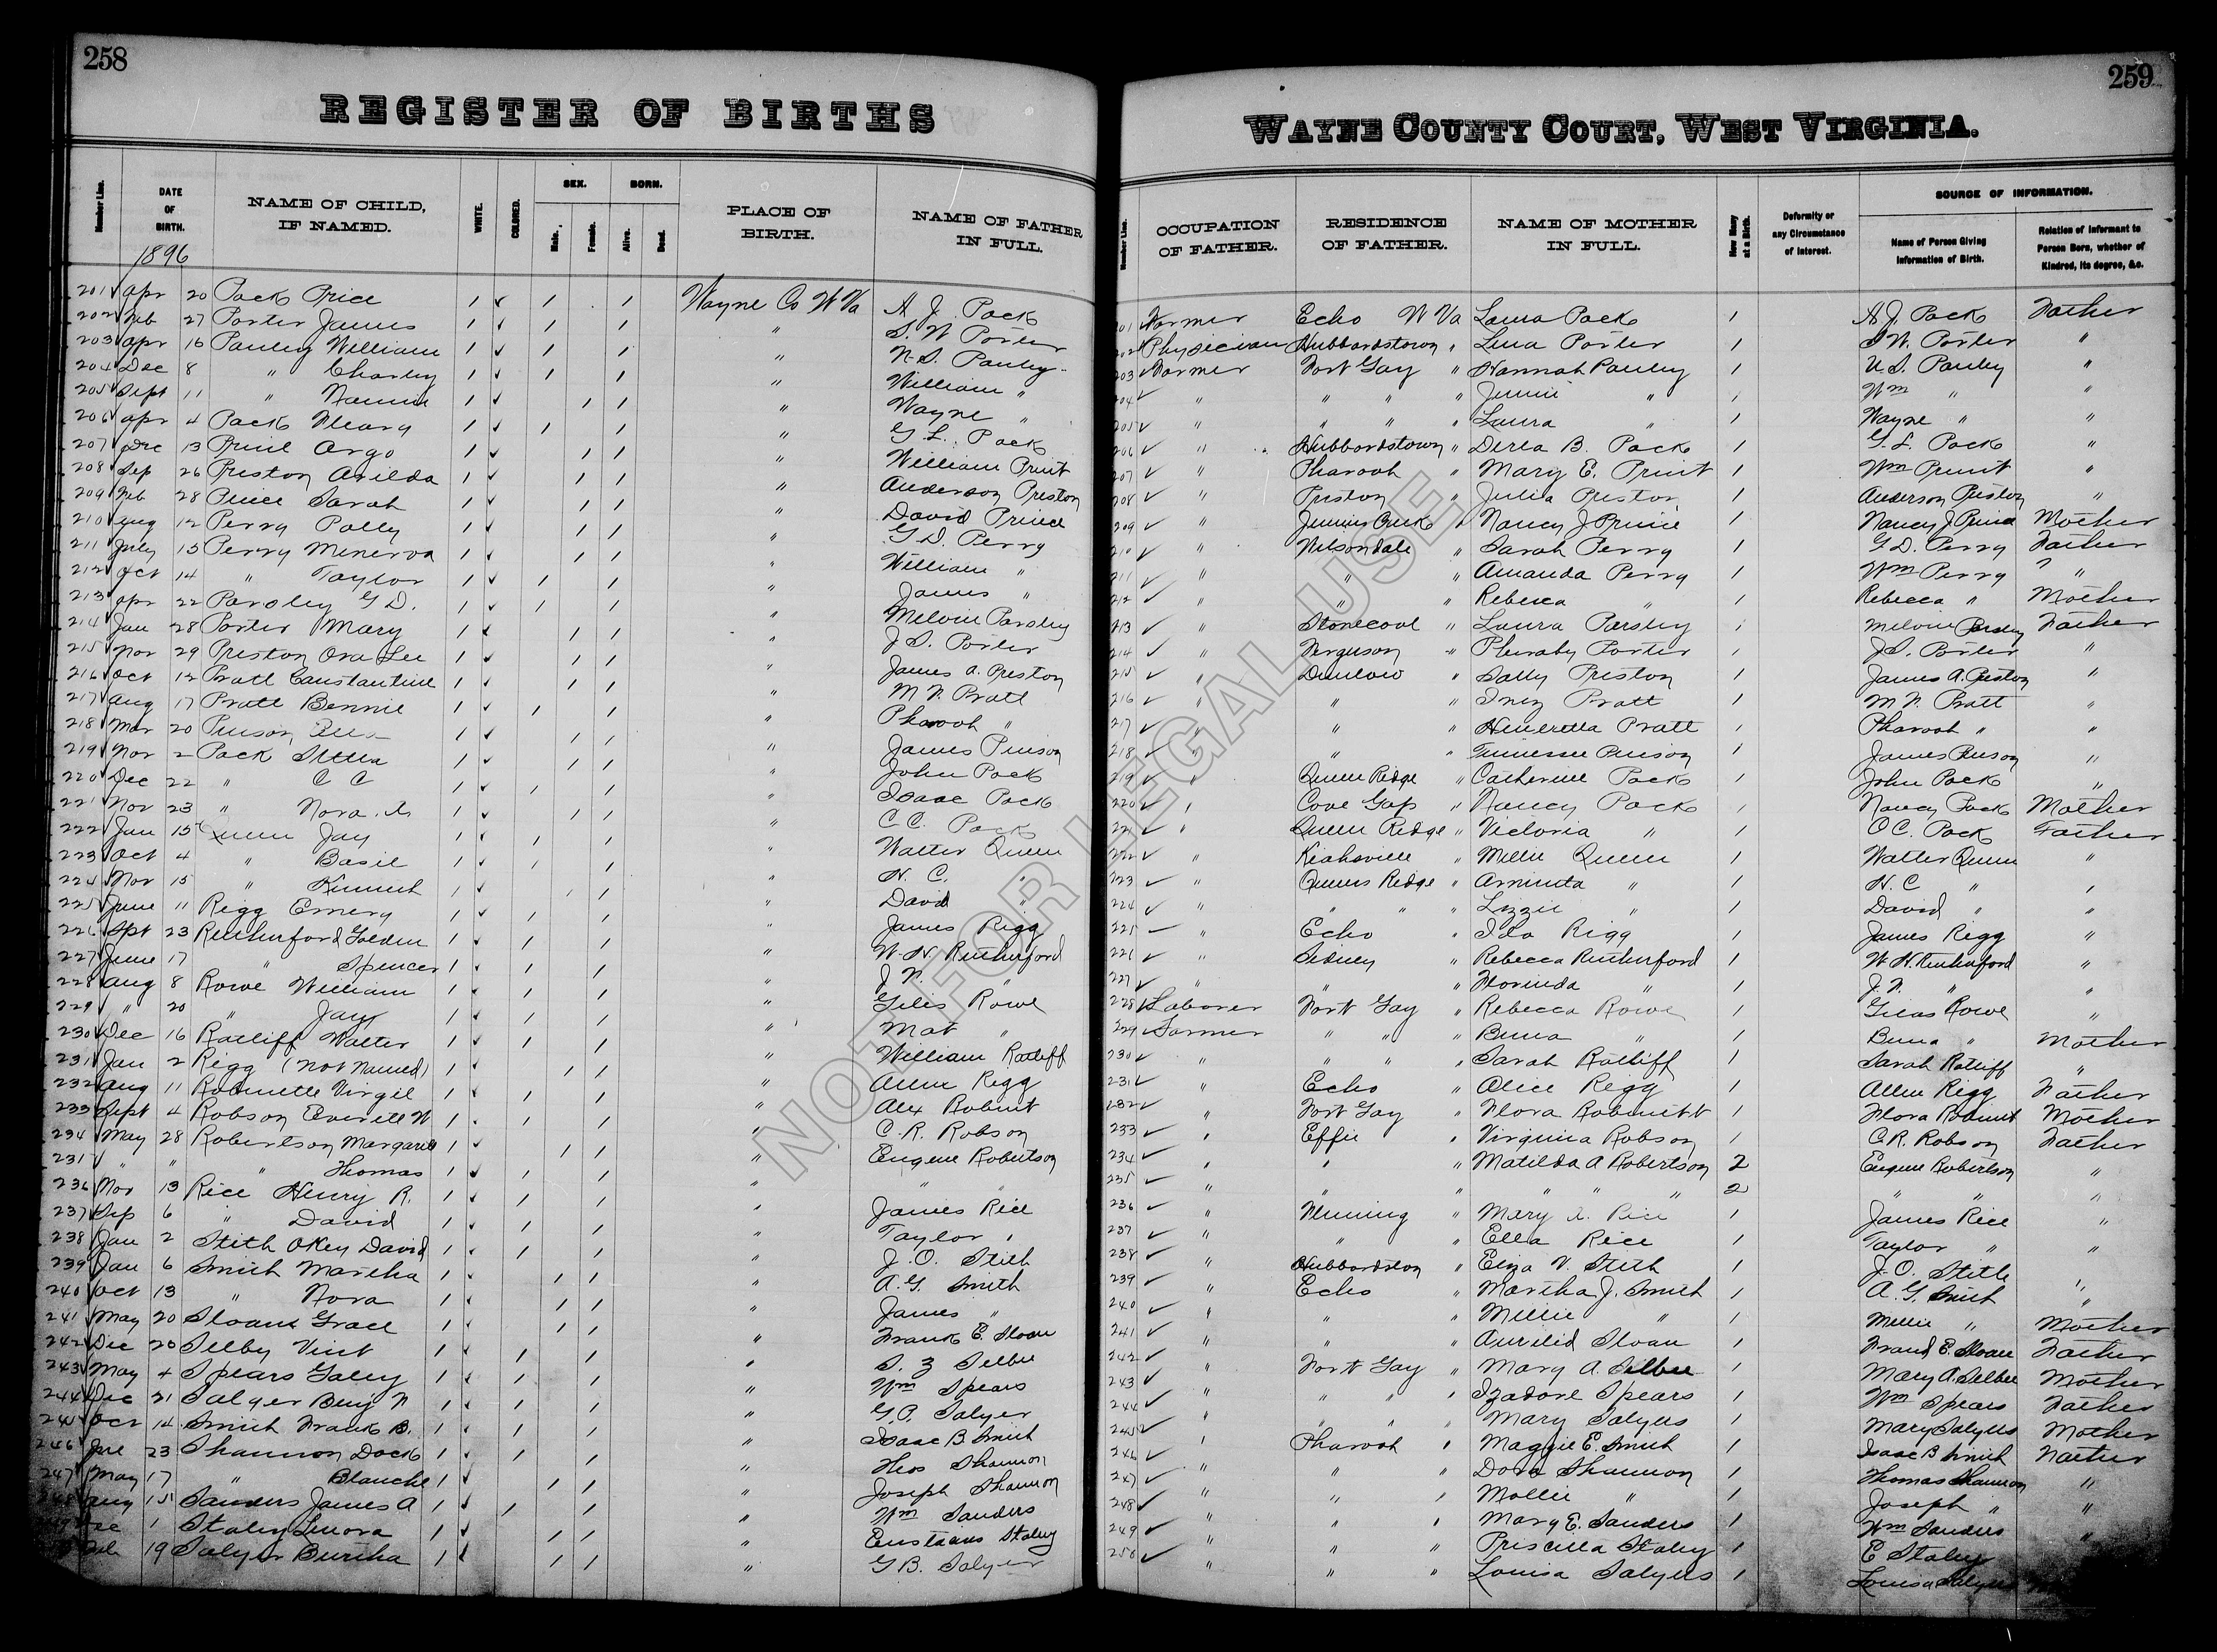 258
REGISTER OF BIRTHS
Number Line. DATE OF BIRTH. NAME OF CHILD, IF NAMED. WHITE. COLORED. SEX. Male. Female. BORN. Alive. Dead. PLACE OF BIRTH. NAME OF FATHER IN FULL.
1896
201 Apr 20 Pack Price 1 1 1 Wayne Co W Va A J Pack
202 Feb 27 Porter James 1 1 1 " S. W Porter
203 Apr 16 Pauley William 1 1 1 " Pauley
204 Dec 8 " Charley 1 1 1 " William "
205 Sept 11 " Nannie 1 1 1 " Wayne "
206 Apr 4 Pack 1 1 1 " G L. Pack
207 Dec 13 Argo 1 1 1 " William Pruit
208 Sep 26 Preston Arilda 1 1 1 " Anderson Preston
209 Feb 28 Sarah 1 1 1 " David Prince
210 Aug 12 Perry Polly 1 1 1 " G. D. Perry
211 July 15 Perry Minerva 1 1 1 " William "
212 Oct 14 " Taylor 1 1 1 " James "
213 Apr 22 Parsley G D. 1 1 1 " Melvin Parsley
214 Jan 28 Porter Mary 1 1 1 " J. S. Porter
215 Nov 29 Preston Ora Lee 1 1 1 " James A. Preston
216 Oct 12 Pratt Constantine 1 1 1 " Pratt
217 Aug 17 Pratt Bennie 1 1 1 " Pharoah "
218 Mar 20 Pinson 1 1 1 " James Pinson
219 Nov 2 Pack 1 1 1 " John Pack
220 Dec 22 " C C 1 1 1 " Isaac Pack
221 Nov 23 " Nora 1 1 1 " C C. Pack
222 Jan 15 Queen Jay 1 1 1 " Walter Queen
223 Oct 4 " Basil 1 1 1 " H. C. "
224 Nov 15 " 1 1 1 " David "
225 June 11 Rigg Emery 1 1 1 " James Rigg
226 Sept 23 Rutherford Golden 1 1 1 " W. H. Rutherford
227 June 17 " Spencer 1 1 1 " "
228 Aug 8 Rowe William 1 1 1 " Giles Rowe
229 " 20 " Jay 1 1 1 " Mat "
230 Dec 16 Ratliff Walter 1 1 1 " William Ratliff
231 Jan 2 Rigg (not named) 1 1 1 " Allen Rigg
232 Aug 11 Robinette Virgil 1 1 1 " Alex
233 Sept 4 Robson Everett W 1 1 1 " C. R. Robson
234 May 28 Robertson Margaret 1 1 1 " Eugene Robertson
" " " Thomas 1 1 1 " " "
236 Nov 13 Rice Henry R. 1 1 1 " James Rice
237 Sep 6 " David 1 1 1 " Taylor "
238 Jan 2 Stith Okey David 1 1 1 " J. O. Stith
239 Jan 6 Smith Martha 1 1 1 " A. G. Smith
240 Oct 13 " Nora 1 1 1 " James "
241 May 20 Sloan Grace 1 1 1 " Frank E. Sloan
242 Dec 20 Selby 1 1 1 " S. Z Selbee
243 May 4 Spears Galey 1 1 1 " Wm Spears
244 Dec 21 Salyer Benj F 1 1 1 " G. P. Salyer
245 Oct 14 Smith Frank B. 1 1 1 " Isaac B. Smith
246 23 Shannon Dock 1 1 1 " Thos Shannon
247 May 17 " Blanche 1 1 1 " Joseph Shannon
248 Aug 15 Sanders James A 1 1 1 " Wm Sanders
1 Staley Lenora 1 1 1 " Staley
19 Salyer Bertha 1 1 1 " G. B. Salyer
259
WAYNE COUNTY COURT, WEST VIRGINIA.
Number Line. OCCUPATION OF FATHER. RESIDENCE OF FATHER. NAME OF MOTHER IN FULL. How Many at a Birth. Deformity or any Circumstance of Interest. SOURCE OF INFORMATION. Name of Person Giving Information of Birth. Relation of Informant to Person Born, whether of Kindred, its degree, &c.
201 Farmer Echo W Va Laura Pack 1 A J. Pack Father
202 Physician Hubbardstown " Lena Porter 1 S W. Porter "
203 Farmer Fort Gay " Hannah Pauley 1 Pauley "
204 " " " " Jennie " 1 Wm " "
205 " " " " Laura " 1 Wayne " "
206 " Hubbardstown " Della B. Pack 1 G. L. Pack "
207 " Pharoah " Mary E. Pruit 1 Wm Pruit "
208 " Preston " Julia Preston 1 Anderson Preston "
209 " Jennies Creek " Nancy J Prince 1 Nancy J Prince Mother
210 " Nelsondale " Sarah Perry 1 G D. Perry Father
211 " " " Amanda Perry 1 Wm Perry "
212 " " " Rebecca " 1 Rebecca " Mother
213 " Stonecoal " Laura Parsley 1 Melvin Parsley Father
214 " Ferguson " Porter 1 J. S. Porter "
215 " Dunlow " Sally Preston 1 James A. Preston "
216 " " " Inez Pratt 1 Pratt "
217 " " " Henrietta Pratt 1 Pharoah " "
218 " " " Tennessee Pinson 1 James Pinson "
219 " Queen Ridge " Catherine Pack 1 John Pack "
220 " Cove Gap " Nancy Pack 1 Nancy Pack Mother
221 " Queen Ridge " Victoria " 1 C C. Pack Father
222 " Kiahsville " Millie Queen 1 Walter Queen "
223 " Queens Ridge " Arminta " 1 H. C " "
224 " " " " Lizzie " 1 David " "
225 " Echo " Ida Rigg 1 James Rigg "
226 " Sidney " Rebecca Rutherford 1 W H. Rutherford "
227 " " " Florinda " 1 " "
228 Laborer Fort Gay " Rebecca Rowe 1 Rowe "
229 Farmer " " " " 1 " Mother
230 " " " " Sarah Ratliff 1 Sarah Ratliff "
231 " Echo " Alice Rigg 1 Allen Rigg Father
232 " Fort Gay " Flora 1 Flora Mother
233 " Effie " Virginia Robson 1 C. R. Robson Father
234 " " " Matilda A Robertson 2 Eugene Robertson "
235 " " " " " " 2 " " "
236 " Fleming " Mary A. Rice 1 James Rice "
237 " " " Ella Rice 1 Taylor " "
238 " Hubbardston " Stith 1 J. O. Stith "
239 " Echo " Martha J. Smith 1 A. G. Smith "
240 " " " Millie " 1 Millie " Mother
241 " " " Sloan 1 E. Sloan Father
242 " Fort Gay " Mary A. Selbee 1 Mary A. Selbee Mother
243 " " " " Izadore Spears 1 Wm Spears Father
244 " " " " Mary Salyers 1 Mary Salyers Mother
245 " Pharoah " Maggie E. Smith 1 Isaac B Smith Father
246 " " " Dora Shannon 1 Thomas Shannon "
247 " " " Mollie " 1 Joseph " "
248 " " " Mary E. Sanders 1 Wm Sanders "
249 " " " Priscilla Staley 1 E Staley
250 " " " Louisa Salyers 1 Louisa Salyers
NOT FOR LEGAL USE